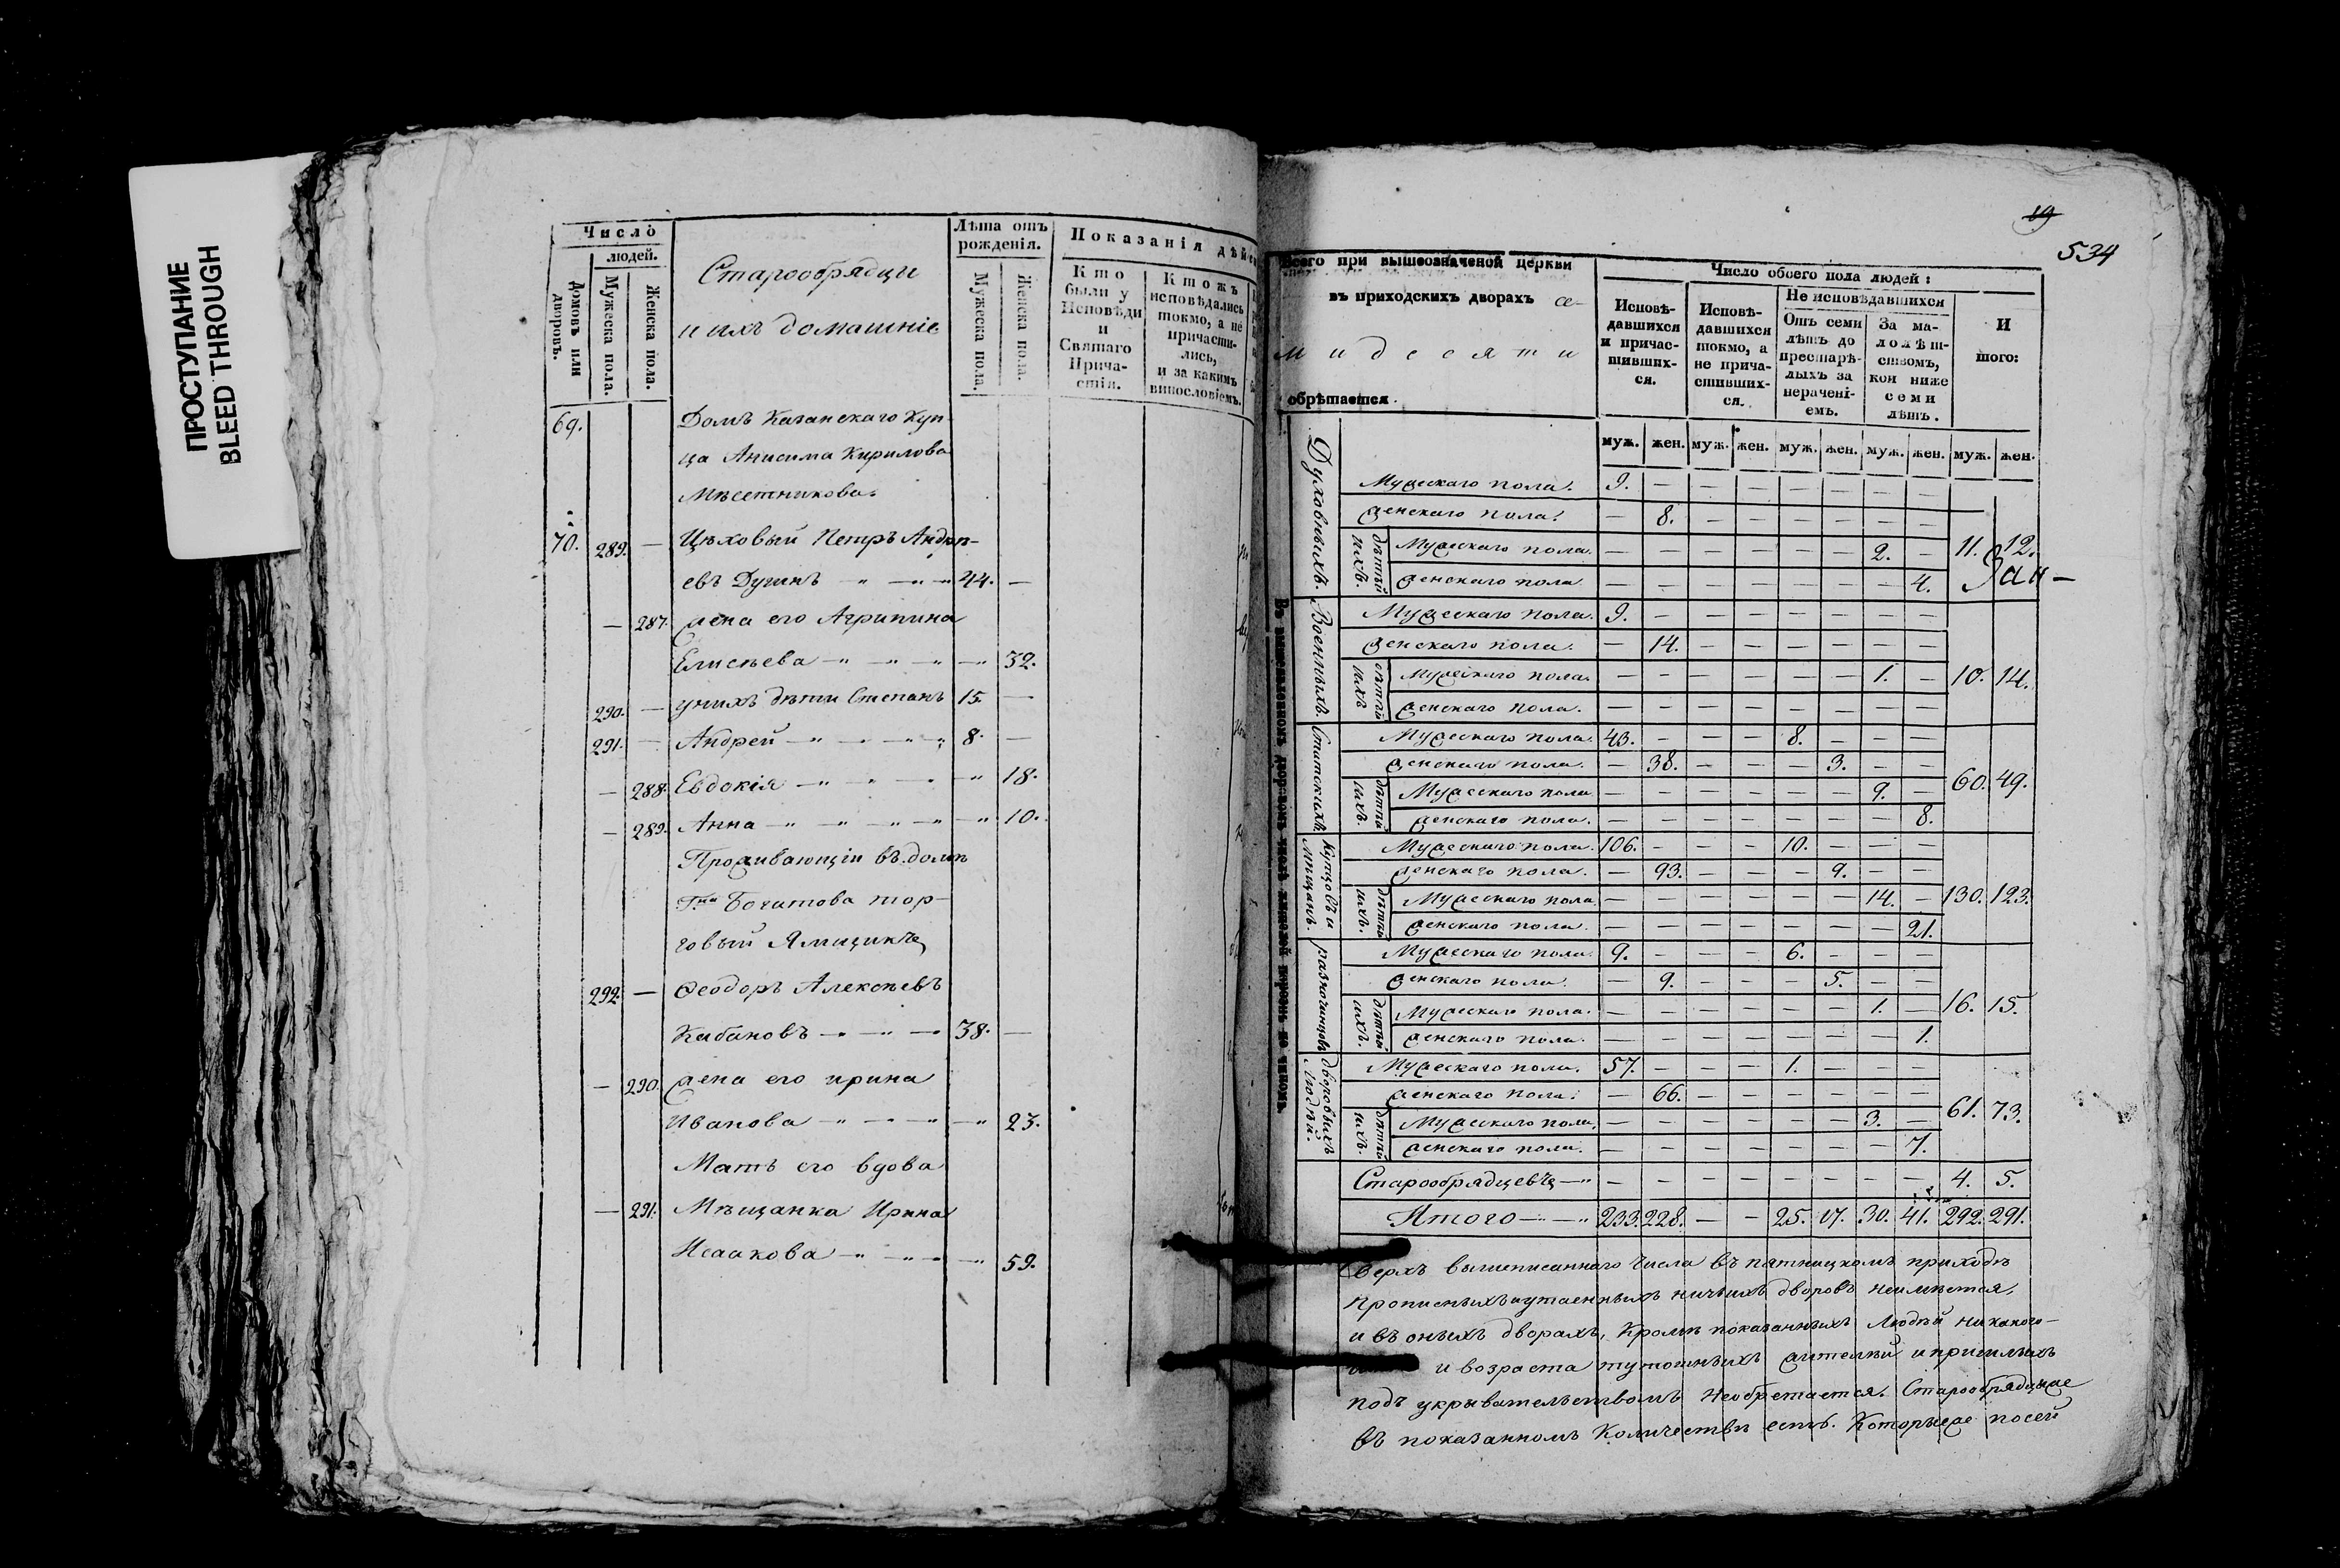 ПРОСТУПАНИЕ
BLEED THROUGH
Число
людей.
Домовъ или дворовъ.
Мужеска пола.
Женска пола.
Старообрядцы
и ихъ домашніе
Лѣта отъ
рожденія.
Мужеска пола.
Женска пола.
Показанія дѣй
Кто
были у
Исповѣди
и
Святаго
Прича-
стія.
Ктожъ
исповѣдались
токмо, а не
причасти-
лись,
и за какимъ
винословіемъ.
69. Домъ Казанскаго Куп-
ца Анисима Кирилова
Мѣсетникова.
70. 289. — Цѣховый Петръ Андрѣ-
евъ Душнъ 44. —
— 287. жена его Агрипина
Елисѣева — 32.
290. — у нихъ дѣти Степанъ 15. —
291. — Андрей 8. —
— 288. Евдокія — 18.
— 289. Анна — 10.
Проживающіи въ домѣ
Гна Богатова тор-
говый Ямщикъ
292. — Ѳеодоръ Алексѣевъ
Кабановъ 38. —
— 290. жена его ирина
Иванова — 23.
Мать его вдова
— 291. Мѣщанка Ирина
Исаакова — 59.
19
534
Всего при вышеозначеной церкви
въ приходскихъ дворахъ се-
мидесяти
обрѣтается.
Число обоего пола людей:
Исповѣ-
давшихся
и причас-
тивших-
ся.
Исповѣ-
давшихся
токмо, а
не прича-
стивших-
ся.
Не исповѣдавшихся
Отъ семи
лѣтъ до
престарѣ-
лыхъ за
нерачені-
емъ.
За ма-
лолѣт-
ствомъ,
кои ниже
семи
лѣтъ.
И
того:
муж. жен. муж. жен. муж. жен. муж. жен. муж. жен.
Духовныхъ.
Мужескаго пола. 9. — — — — — — —
Женскаго пола. — 8. — — — — — —
дѣтей ихъ.
Мужескаго пола. — — — — — — 2. — 11. 12.
Женскаго пола — — — — — — — 4.
Зан-
Военныхъ.
Мужескаго пола. 9. — — — — — — —
Женскаго пола. — 14. — — — — — —
дѣтей ихъ
Мужескаго пола. — — — — — — 1. — 10. 14.
Женскаго пола. — — — — — — — —
Статскихъ
Мужескаго пола. 43. — — — 8. — — —
Женскаго пола. — 38. — — — 3. — —
дѣтей ихъ.
Мужескаго пола — — — — — — 9. — 60. 49.
Женскаго пола. — — — — — — — 8.
Купцовъ и мѣщанъ.
Мужескаго пола. 106. — — — 10. — — —
Женскаго пола. — 93. — — — 9. — —
дѣтей ихъ.
Мужескаго пола — — — — — — 14. — 130. 123.
Женскаго пола. — — — — — — — 21.
разночинцовъ
Мужескаго пола. 9. — — — 6. — — —
Женскаго пола. — 9. — — — 5. — —
дѣтей ихъ.
Мужескаго пола. — — — — — — 1. — 16. 15.
Женскаго пола. — — — — — — — 1.
Дворовыхъ Людѣй.
Мужескаго пола. 57. — — — 1. — — —
Женскаго пола. — 66. — — — — — —
дѣтей ихъ.
Мужескаго пола. — — — — — — 3. — 61. 73.
Женскаго пола. — — — — — — — 7.
Старообрядцевъ — — — — — — — — 4. 5.
Итого 233. 228. — — 25. 17. 30. 41. 292. 291.
Сверхъ вышеписаннаго числа въ пятницкомъ приходѣ
прописныхъ и утаенныхъ ничьихъ дворовъ неимѣтся,
и въ оныхъ дворахъ, Кромѣ показанныхъ Людѣй никакого-
и возраста тутошныхъ жителѣй и пришлыхъ
подъ укрывательствомъ Необретается. Старообрядцыже
въ показанномъ Количествѣ есть. Которыеже посей